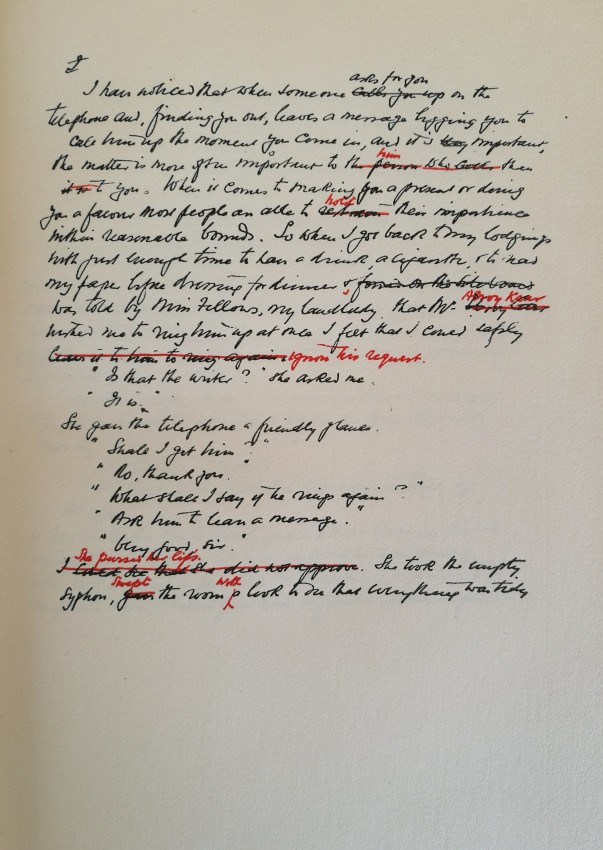 I
asks for you
I have noticed that when someone calls you up on the
telephone and, finding you out, leaves a message begging you to
call him up the moment you come in, and it is important,
him
the matter is more often important to the person who calls than
it is to you. When it comes to making you a present or doing
hold
you a favour most people are able to restrain their impatience
within reasonable bounds. So when I got back to my lodgings
with just enough time to have a drink, a cigarette, & to read
my paper before dressing for dinner, & found on the sideboard
Alroy Kear
was told by Miss Fellows, my landlady, that Mr.
wished me to ring him up at once I felt that I could safely
leave it to him to ring again. ignore his request.
"Is that the writer?" she asked me.
"It is."
She gave the telephone a friendly glance.
"Shall I get him?"
"No, thank you."
"What shall I say if he rings again?"
"Ask him to leave a message."
"Very good, sir."
She pursed her lips.
I could see that she did not approve. She took the empty
swept with
syphon, gave the room a look to see that everything was tidy